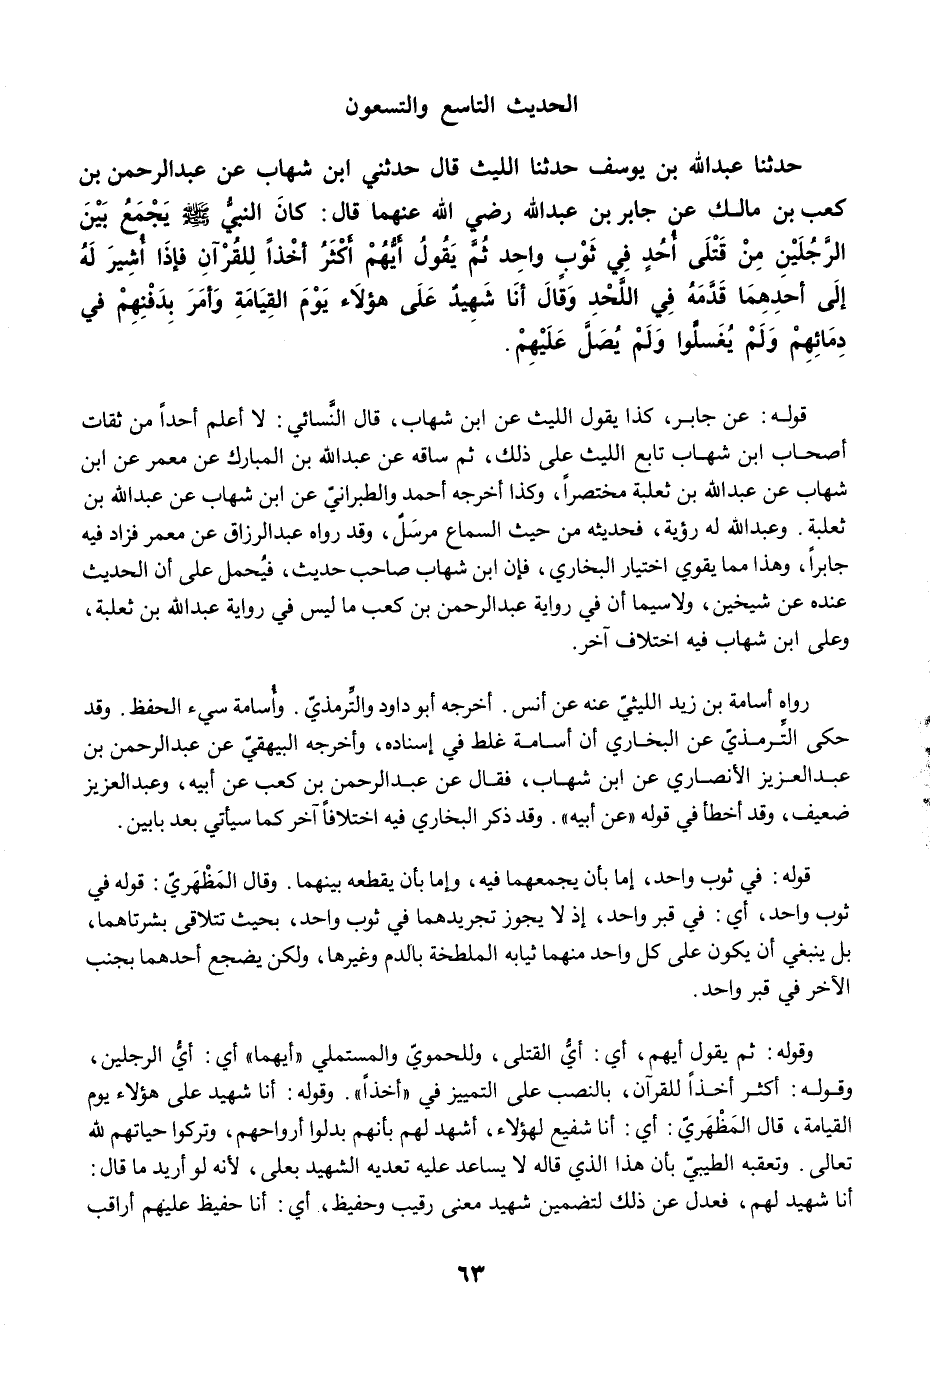 الحديث التاسع والتسعون
حدثنا عبدالله بن يوسف حدثنا الليث قال حدثني ابن شهاب عن عبدالرحمن بن
كعب بن مالك عن جابر بن عبدالله رضي الله عنهما قال: كانَ النبيُّ ﷺ يَجْمَعُ بَيْنَ
الرَّجُلَيْنِ مِنْ قَتْلَى أُحُدٍ فِي ثَوْبٍ واحِد ثُمَّ يَقُولُ أَيُّهُمْ أَكْثَرُ أخْذاً للقُرْآنِ فإذَا أُشِيرَ لَهُ
إلَى أحدِهِمَا قَدَّمَهُ فِي اللَّحْدِ وَقَالَ أنَا شَهِيدٌ عَلَى هؤلاَء يَوْمَ القِيَامَةِ وَأمَرَ بِدَفْنِهِمْ في
دِمَائِهِمْ وَلَمْ يُغَسلُوا وَلَمْ يُصَلَّ عَلَيْهِمْ.
قوله: عن جابر، كذا يقول الليث عن ابن شهاب، قال النَّسائي: لا أعلم أحداً من ثقات
أصحاب ابن شهاب تابع الليث على ذلك، ثم ساقه عن عبدالله بن المبارك عن معمر عن ابن
شهاب عن عبدالله بن ثعلبة مختصراً، وكذا أخرجه أحمد والطبرانيّ عن ابن شهاب عن عبدالله بن
ثعلبة. وعبدالله له رؤية، فحديثه من حيث السماع مرسَلٌ، وقد رواه عبدالرزاق عن معمر فزاد فيه
جابراً، وهذا مما يقوي اختيار البخاري، فإن ابن شهاب صاحب حديث، فيُحمل على أن الحديث
عنده عن شيخين، ولاسيما أن في رواية عبدالرحمن بن كعب ما ليس في رواية عبدالله بن ثعلبة،
وعلى ابن شهاب فيه اختلاف آخر.
رواه أسامة بن زيد الليثيّ عنه عن أنس. أخرجه أبو داود والتِّرمذيّ. وأُسامة سيء الحفظ. وقد
حكى التِّرمذيّ عن البخاري أن أسامة غلط في إسناده، وأخرجه البيهقيّ عن عبدالرحمن بن
عبدالعزيز الأنصاري عن ابن شهاب، فقال عن عبدالرحمن بن كعب عن أبيه، وعبدالعزيز
ضعيف، وقد أخطأ في قوله «عن أبيه». وقد ذكر البخاري فيه اختلافاً آخر كما سيأتي بعد بابين.
قوله: في ثوب واحد، إما بأن يجمعهما فيه، وإما بأن يقطعه بينهما. وقال المَظْهَريّ: قوله في
ثوب واحد، أي: في قبر واحد، إذ لا يجوز تجريدهما في ثوب واحد، بحيث تتلاقى بشرتاهما،
بل ينبغي أن يكون على كل واحد منهما ثيابه الملطخة بالدم وغيرها، ولكن يضجع أحدهما بجنب
الآخر في قبر واحد.
وقوله: ثم يقول أيهم، أي: أيُّ القتلى، وللحمويّ والمستملي «أيهما» أي: أيُّ الرجلين،
وقوله: أكثر أخذاً للقرآن، بالنصب على التمييز في «أخذاً». وقوله: أنا شهيد على هؤلاء يوم
القيامة، قال المَظْهَريّ: أي: أنا شفيع لهؤلاء، أشهد لهم بأنهم بذلوا أرواحهم، وتركوا حياتهم لله
تعالى. وتعقبه الطيبيّ بأن هذا الذي قاله لا يساعد عليه تعديه الشهيد بعلى، لأنه لو أريد ما قال:
أنا شهيد لهم، فعدل عن ذلك لتضمين شهيد معنى رقيب وحفيظ، أي: أنا حفيظ عليهم أراقب
٦٣